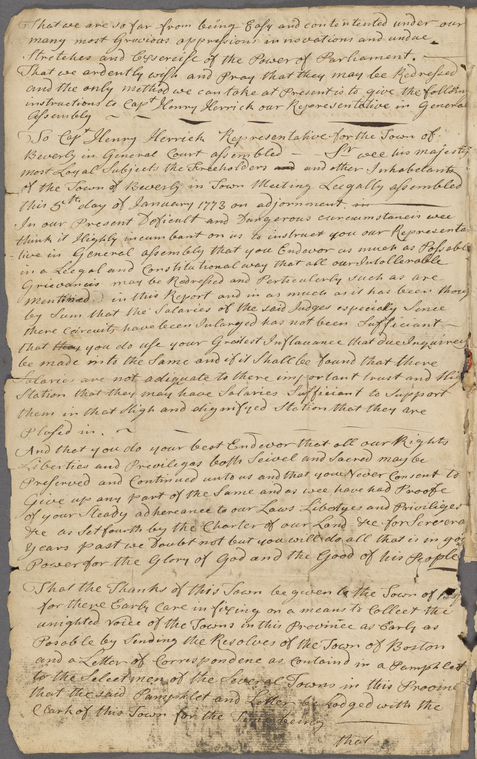 That we are so far from being Easy and contentented under our
many most Grevious oppressions in novations and undue
Stretches and Exerceise of the Power of Parliament,
That we ardently wish and Pray that they may be Redressed
and the only method we can take at Present is to give the follow
instructions to Capt Henry Herrick our Representative in General
Assembly
To Capt Henry Herrick Representative for the Town of
Beverly in General Court assembled Sr wee his majestys
most Loyal Subjects the Freeholders and and other Inhabetants
of the Town of Beverly in Town Meeting Leegally assembled
this 5th day of January 1773 on adjornment, in
In our Present Deficult and Dangerous curcumstances wee
think it Highly incumbant on us to instruct you our Representa
tive in General assembly that you Endevor as much as Possable
in a Leegal and Constitutional way that all our Intollerable
Grievances may be Redresed and Perticulerly Such as are
mentined in this Report and in as much as it has been thoug
by Sum that the Salaries of the said Judges especialy Sence
there Circuits have been Inlarged has not been Sufficiant
that you do use your Greatest Influance that due Inquirey
be made into the Same and if it Shall be found that there
Salaries are not adiquate to there important trust and high
Station that they may have Salaries Sufficiant to Support
them in that High and dignifyed Station that they are
Plased in.
And that you do your best Endevor that all our Rights
Liberties and Privileges both Seivel and Sacred may be
Preserved and Continued unto us and that you Never Consent to
Give up any part of the Same and as wee have had Proofe
of your Steady adhereance to our Laws Libedyes and Priviliges
&c as Set fourth by the Charter of our Land &c for Severa
Years Past we doubt not but you will do all that is in yo
Power for the Glory of God and the Good of his People
That the Thanks of this Town be given to the Town of
for there Early Care in fixing on a means to Collect the
unighted Voice of the Towns in this Province as Early as
Posable by Sending the Resolves of the Town of Boston
and a Letter of Correspondene as Containd in a Pamphlet
to the Selectmen of the Several Towns in this Provin
that the said Pamphlet and Letter be Lodged with the
Clark of this Town for the
that